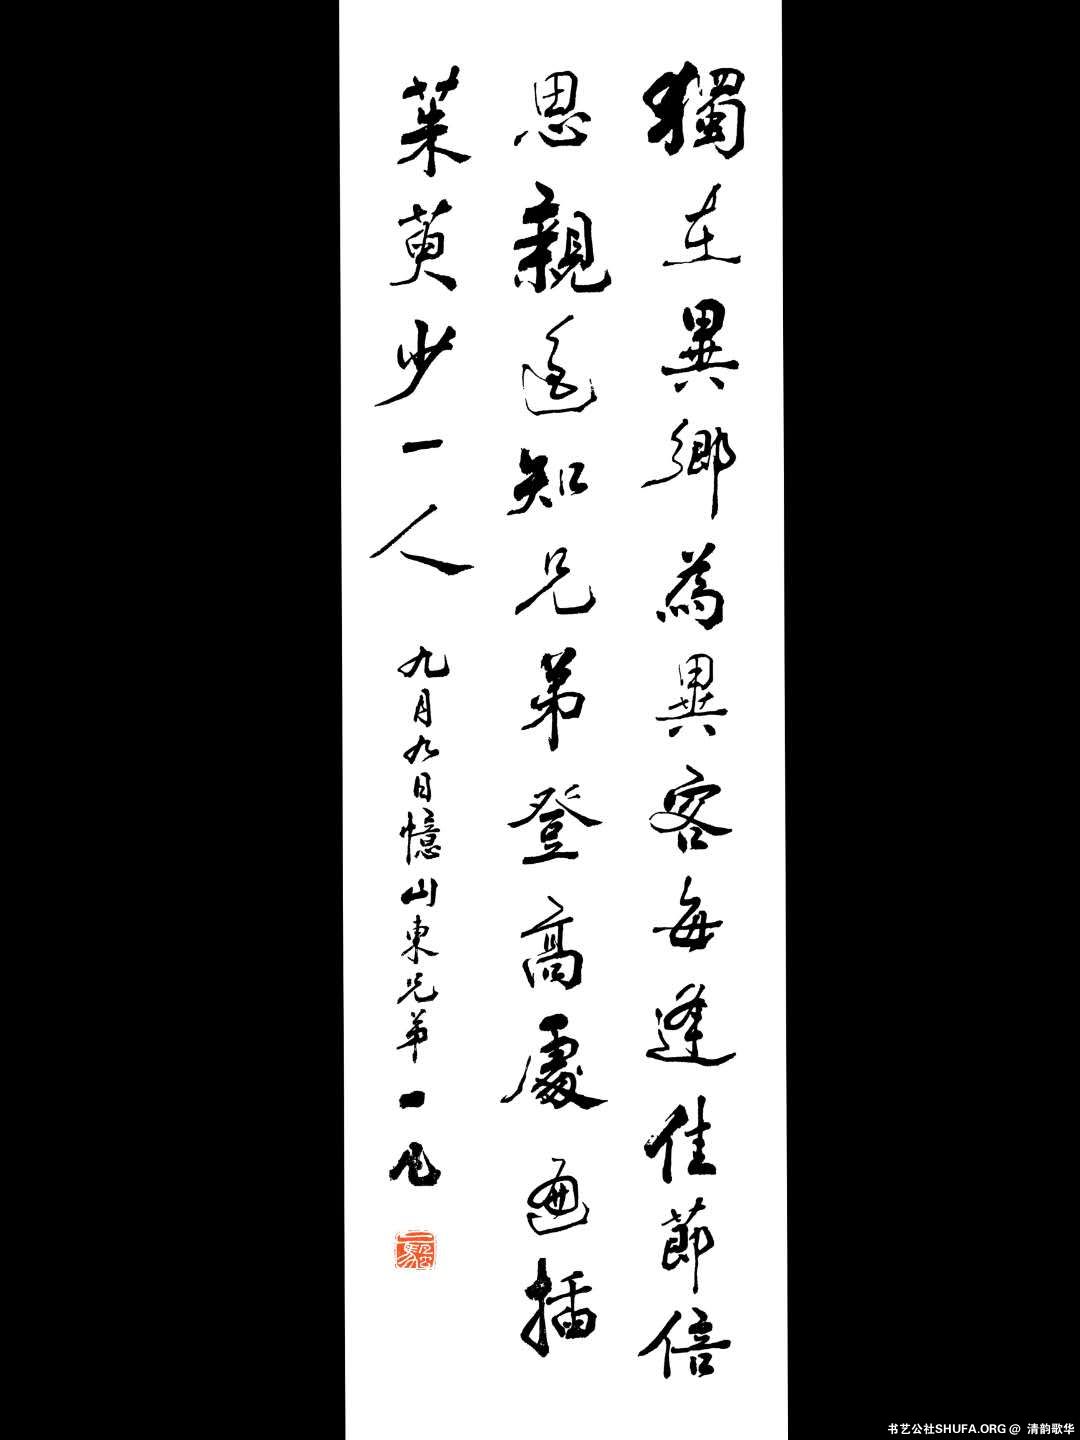 獨在異鄉為異客每逢佳節倍
思親遙知兄弟登高處遍插
茱萸少一人
九月九日憶山東兄弟 一
书艺公社SHUFA.ORG @ 清韵歌华